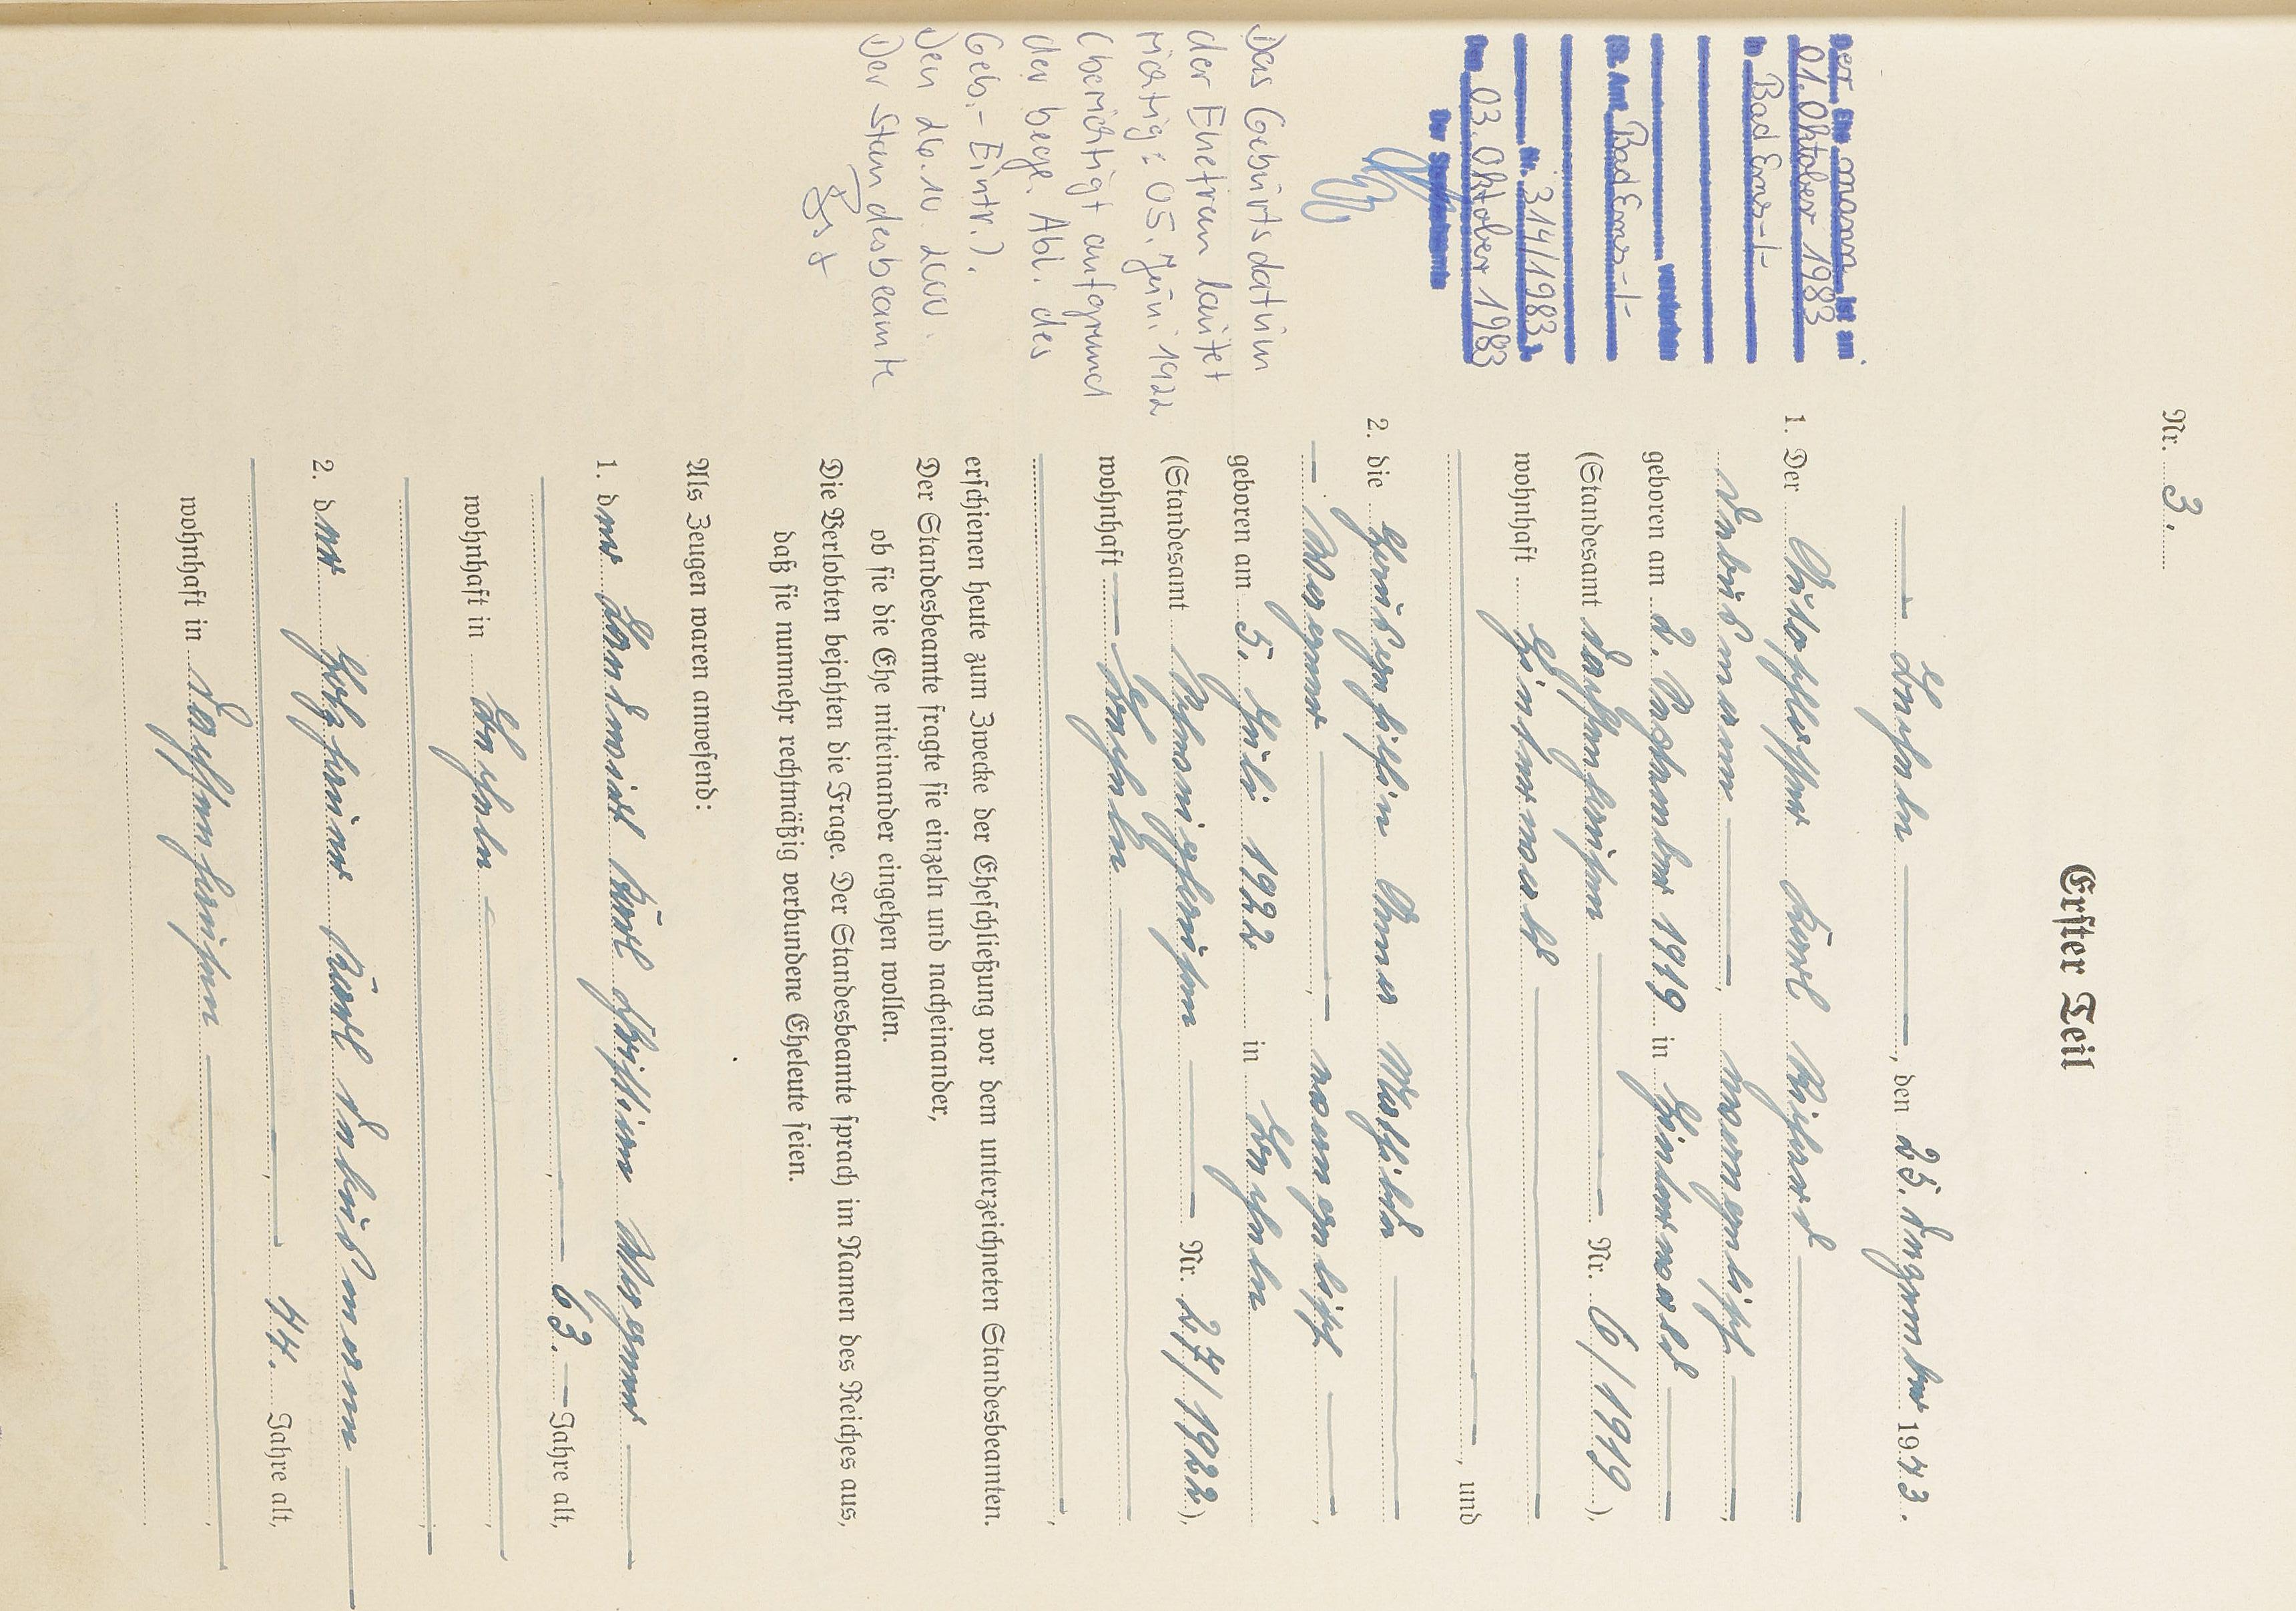 Nr. 3.
Erster Teil
, den 25. Dezember 1943.
1. Der Autoschlosser Karl Richard
Debusmann, evangelisch
geboren am 2. September 1919 in Hinterwald
(Standesamt Dachsenhausen Nr. 6/1919),
wohnhaft Hinterwald
, und
2. die Hausgehilfin Anna Mathilde
Wagner, evangelisch,
geboren am 5. Juli 1922 in
(Standesamt Nr. 27/1922),
wohnhaft
erschienen heute zum Zwecke der Eheschließung vor dem unterzeichneten Standesbeamten.
Der Standesbeamte fragte sie einzeln und nacheinander,
ob sie die Ehe miteinander eingehen wollen.
Die Verlobten bejahten die Frage. Der Standesbeamte sprach im Namen des Reiches aus,
daß sie nunmehr rechtmäßig verbundene Eheleute seien.
Als Zeugen waren anwesend:
1. der Landwirt Karl Christian Wagner
, 63. Jahre alt,
wohnhaft in
2. der Holzhauer Karl Debusmann
, 44. Jahre alt,
wohnhaft in Dachsenhausen
Der Ehemann ist am
01. Oktober 1983
in Bad Ems -/-
verstorben
(St. Amt Bad Ems -/-
Nr. 314/1983)
Den 03. Oktober 1983
Der Standesbeamte
Das Geburtsdatum
der Ehefrau lautet
richtig: 05. Juni 1922
(berichtigt aufgrund
der begl. Abl. des
Geb.-Eintr.).
Den 26.10.2000.
Der Standesbeamte